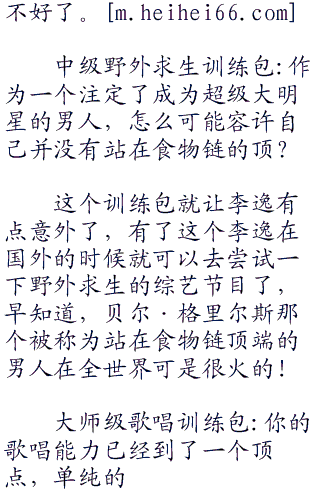 不好了。[m.heihei66.com]
中级野外求生训练包:作
为一个注定了成为超级大明
星的男人，怎么可能容许自
己并没有站在食物链的顶？
这个训练包就让李逸有
点意外了，有了这个李逸在
国外的时候就可以去尝试一
下野外求生的综艺节目了，
早知道，贝尔·格里尔斯那
个被称为站在食物链顶端的
男人在全世界可是很火的！
大师级歌唱训练包:你的
歌唱能力已经到了一个顶
点，单纯的